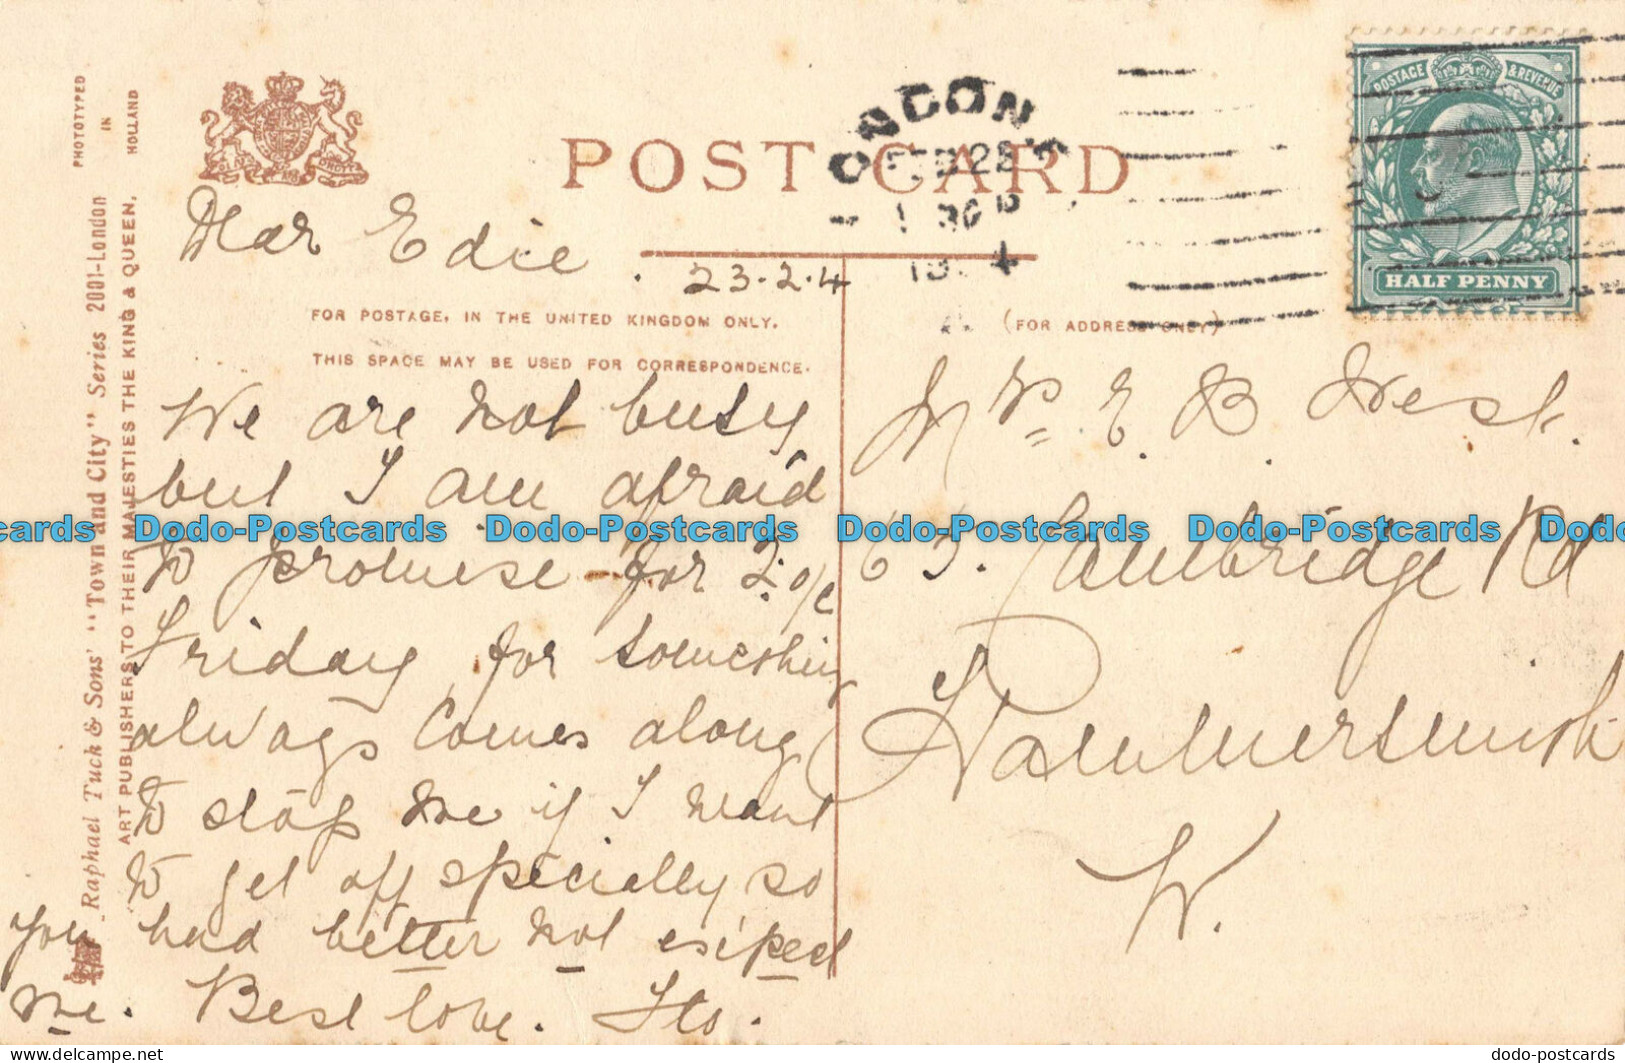 PHOTOTYPED
IN
HOLLAND
Raphael Tuck & Sons' "Town and City" Series 2001-London
ART PUBLISHERS TO THEIR MAJESTIES THE KING & QUEEN.
POST CARD
LONDON
FEB 2
4
POSTAGE & REVENUE
HALF PENNY
Dear Edie
23.2.4
FOR POSTAGE, IN THE UNITED KINGDOM ONLY.
THIS SPACE MAY BE USED FOR CORRESPONDENCE.
(FOR ADDRESS ONLY)
We are not busy
but I am afraid
to promise for 2
Friday, for something
always comes along
to stop me if I want
to get off specially so
you had better not expect
me. Best love. Flo.
Mrs. E. B. West.
63. Cambridge Rd
Hammersmith
W.
cards Dodo-Postcards Dodo-Postcards Dodo-Postcards Dodo-Postcards Dodo-
https://www.delcampe.net
dodo-postcards